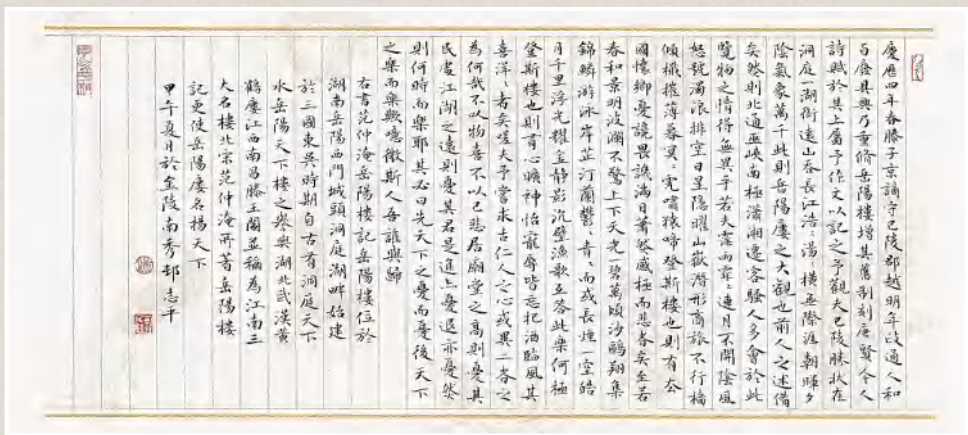 慶曆四年春滕子京謫守巴陵郡越明年政通人和
百廢具興乃重脩岳陽樓增其舊制刻唐賢今人
詩賦於其上屬予作文以記之予觀夫巴陵勝狀在
洞庭一湖銜遠山吞長江浩〻湯〻橫無際涯朝暉夕
陰氣象萬千此則岳陽樓之大觀也前人之述備
矣然則北通巫峽南極瀟湘遷客騷人多會於此
覽物之情得無異乎若夫霪雨霏〻連月不開陰風
怒號濁浪排空日星隱曜山嶽潛形商旅不行檣
傾檝摧薄暮冥〻虎嘯猿啼登斯樓也則有去
國懷鄉憂讒畏譏滿目蕭然感極而悲者矣至若
春和景明波瀾不驚上下天光一碧萬頃沙鷗翔集
錦鱗游泳岸芷汀蘭鬱〻青〻而或長煙一空皓
月千里浮光耀金靜影沉璧漁歌互答此樂何極
登斯樓也則有心曠神怡寵辱皆忘把酒臨風其
喜洋〻者矣嗟夫予嘗求古仁人之心或異二者之
為何哉不以物喜不以己悲居廟堂之高則憂其
民處江湖之遠則憂其君是進亦憂退亦憂然
則何時而樂耶其必曰先天下之憂而憂後天下
之樂而樂歟噫微斯人吾誰與歸
右書范仲淹岳陽樓記岳陽樓位於
湖南岳陽西門城頭洞庭湖畔始建
於三國東吳時期自古有洞庭天下
水岳陽天下樓之譽與湖北武漢黃
鶴樓江西南昌滕王閣並稱為江南三
大名樓北宋范仲淹所著岳陽樓
記更使岳陽樓名楊天下
甲午夏月於金陵南秀邨志平